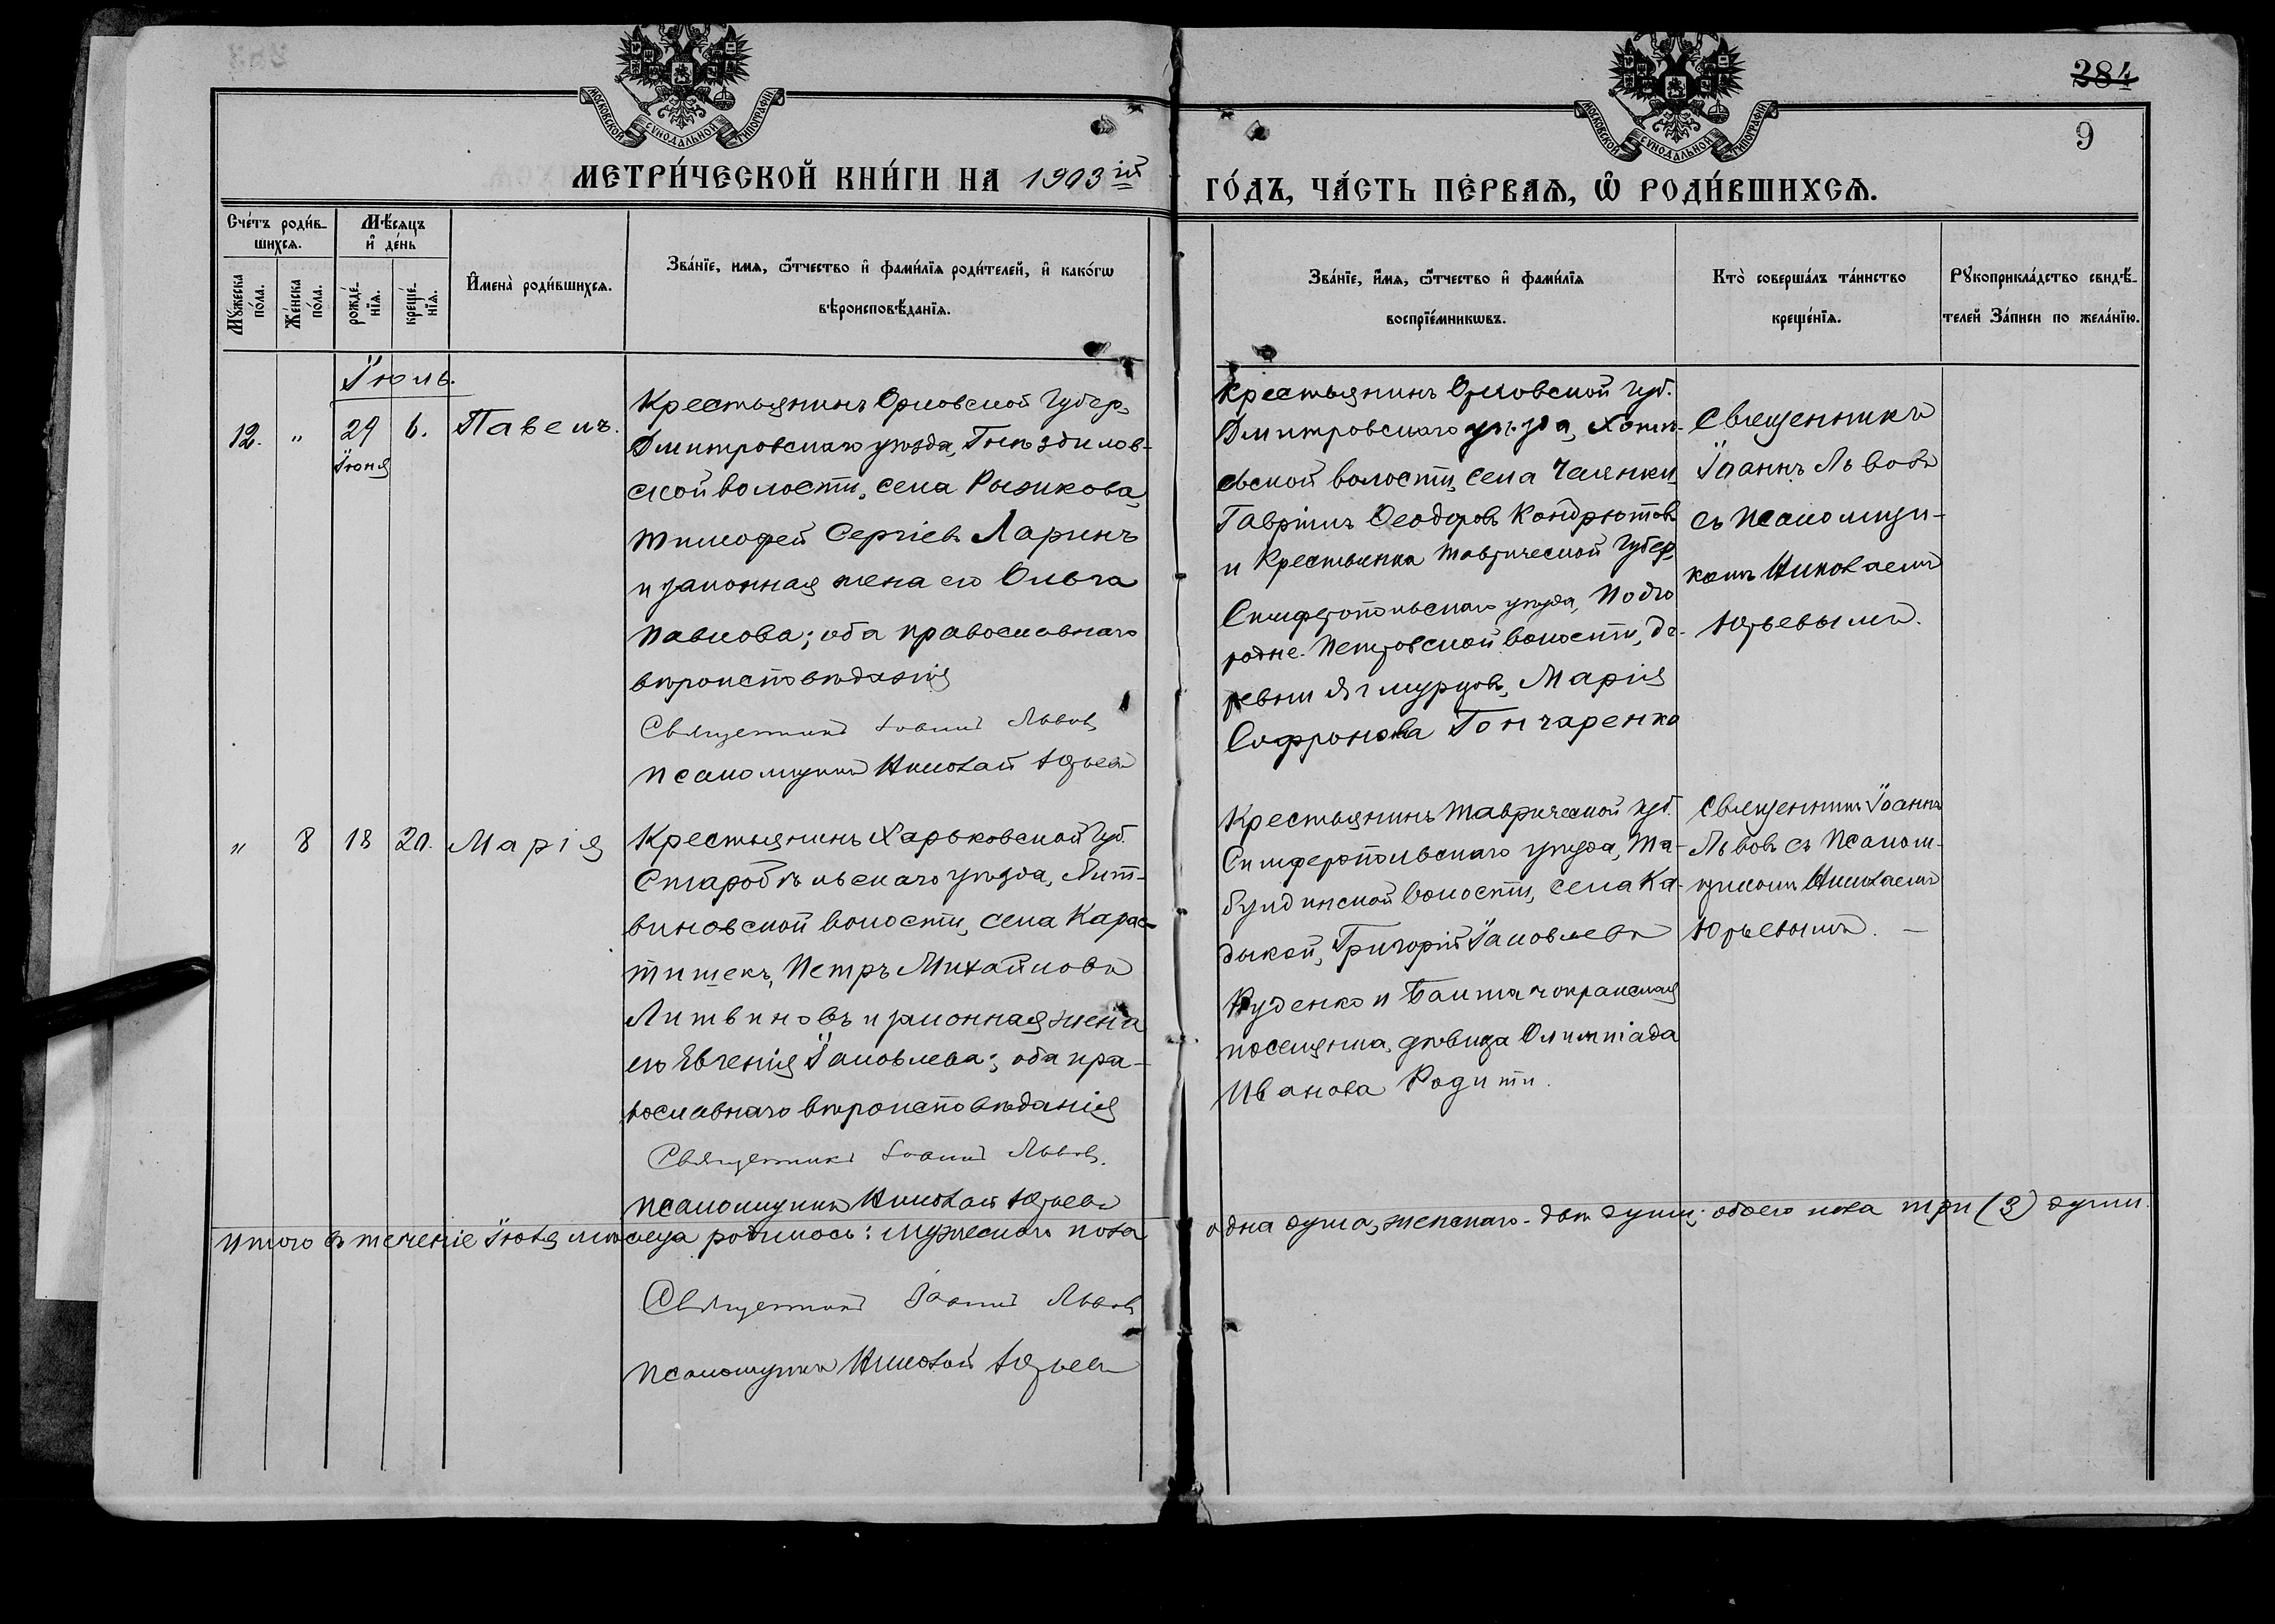 284
9
МОСКОВСКОЙ СѴНОДАЛЬНОЙ ТИПОГРАФІИ
МОСКОВСКОЙ СѴНОДАЛЬНОЙ ТИПОГРАФІИ
МЕТРИ́ЧЕСКОЙ КНИ́ГИ НА 1903 й
ГО́ДЪ, ЧА́СТЬ ПЕ́РВАѦ, Ѡ҆ РОДИ́ВШИХСѦ.
Сче́тъ роди́в-
шихсѧ.
Мꙋ́жеска
по́ла.
Же́нска
по́ла.
Мѣ́сѧцъ
и҆ де́нь
рожде́-
нїѧ.
креще́-
нїѧ.
И҆мена̀ роди́вшихсѧ.
Зва́нїе, имѧ, ѻ҆́тчество и҆ фами́лїѧ роди́телей, и҆ како́гѡ
вѣроисповѣ́данїѧ.
Зва́нїе, и҆́мѧ, ѻ҆́тчество и҆ фами́лїѧ
воспрїе́мникѡвъ.
Кто̀ соверша́лъ та́инство
креще́нїѧ.
Рꙋкоприкла́дство свидѣ́-
телей За́писи по жела́нїю.
Іюль.
12. " 29 6. Павелъ.
Іюня
Крестьянинъ Орловской Губер.
Дмитровскаго уѣзда, Гнѣздилов-
ской волости, села Рыжкова,
Тимофей Сергіевъ Ларинъ
и законная жена его Ольга
Павлова; оба православнаго
вѣроисповѣданія
Священникъ Іоаннъ Львовъ
Псаломщикъ Николай Юрьевъ
Крестьянинъ Орловской губ.
Дмитровскаго уѣзда,
волости, села
Гавріилъ Ѳеодоровъ Кондрютовъ
и Крестьянка Таврической Губер,
Симферопольскаго уѣзда, Подго
родне-Петровской волости, де-
ревни Марія
Софронова Гончаренко
Священникъ
Іоаннъ Львовъ
съ Псаломщи-
комъ Николаемъ
Юрьевымъ.
" 8 18 20. Марія
Крестьянинъ Харьковской Губ.
Старобѣльскаго уѣзда, Лит-
виновской волости, села
Петръ Михайловъ
Литвиновъ и законная жена
его Евгенія Іаковлева; оба пра-
вославнаго вѣроисповѣданія
Священникъ Іоаннъ Львовъ.
Псаломщикъ Николай Юрьевъ
Крестьянинъ Таврической губ.
Симферопольскаго уѣзда, Та-
булдинской волости, села Ка-
дыкой, Григорій Іаковлевъ
Руденко и
поселянка, дѣвица Олимпіада
Иванова Родити.
Священникъ Іоаннъ
Львовъ съ Псалом-
щикомъ Николаемъ
Юрьевымъ. –
Итого въ теченіе Іюля мѣсяца родилось: мужескаго пола
одна душа, женскаго - двѣ души; обоего пола три (3) души.
Священникъ Іоаннъ Львовъ
Псаломщикъ Николай Юрьевъ